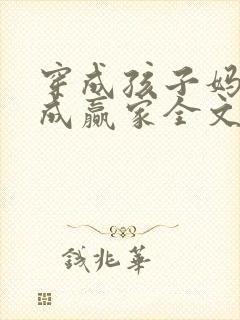 穿成孩子妈
成赢家全文
钱兆华